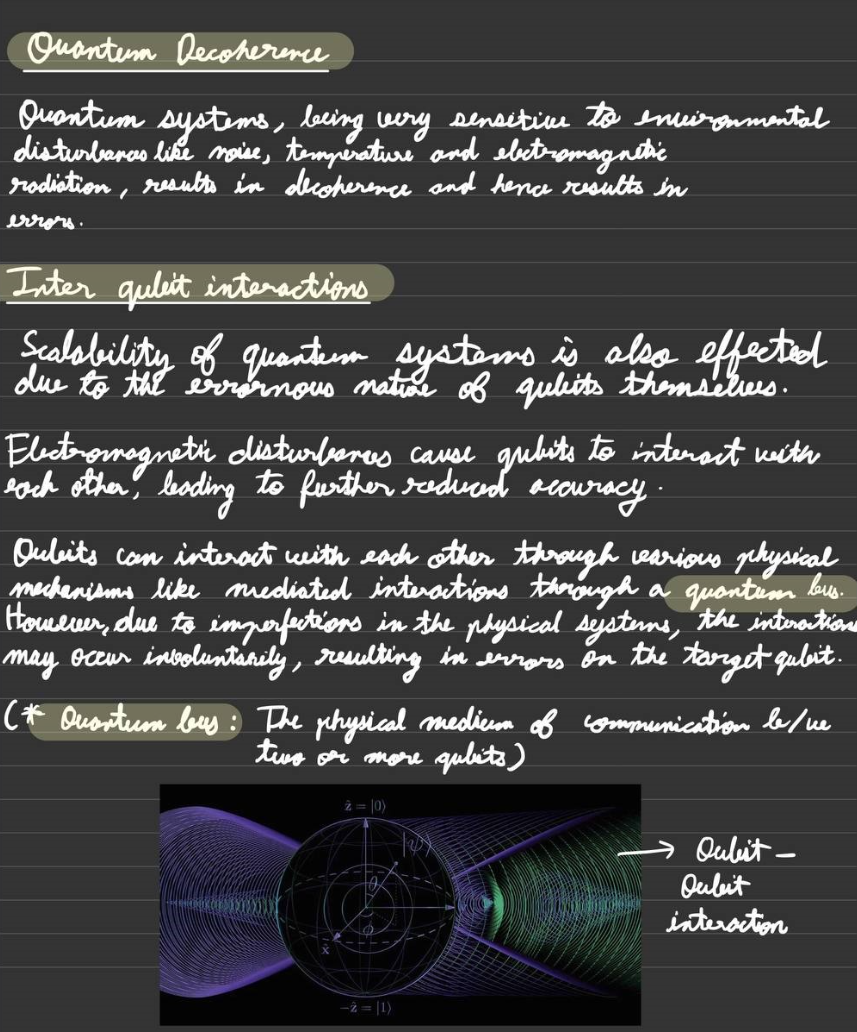 Quantum Decoherence
Quantum systems, being very sensitive to environmental
disturbances like noise, temperature and electromagnetic
radiation, results in decoherence and hence results in
errors.
Inter qubit interactions
Scalability of quantum systems is also effected
due to the errornous nature of qubits themselves.
Electromagnetic disturbances cause qubits to interact with
each other, leading to further reduced accuracy.
Qubits can interact with each other through various physical
mechanisms like mediated interactions through a quantum bus.
However, due to imperfections in the physical systems, the interactions
may occur involuntarily, resulting in errors on the target qubit.
(* Quantum bus : The physical medium of communication b/w
two or more qubits)
ẑ = |0⟩
|ψ⟩
θ
φ
x̂
−ẑ = |1⟩
→ Qubit –
Qubit
interaction